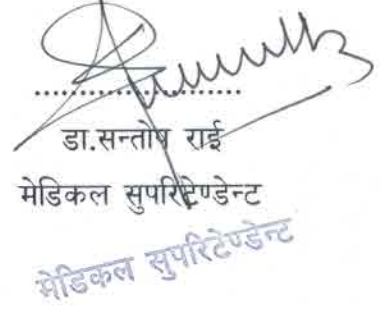 ....................
डा.सन्तोष राई
मेडिकल सुपरिटेण्डेन्ट
मेडिकल सुपरिटेण्डेन्ट